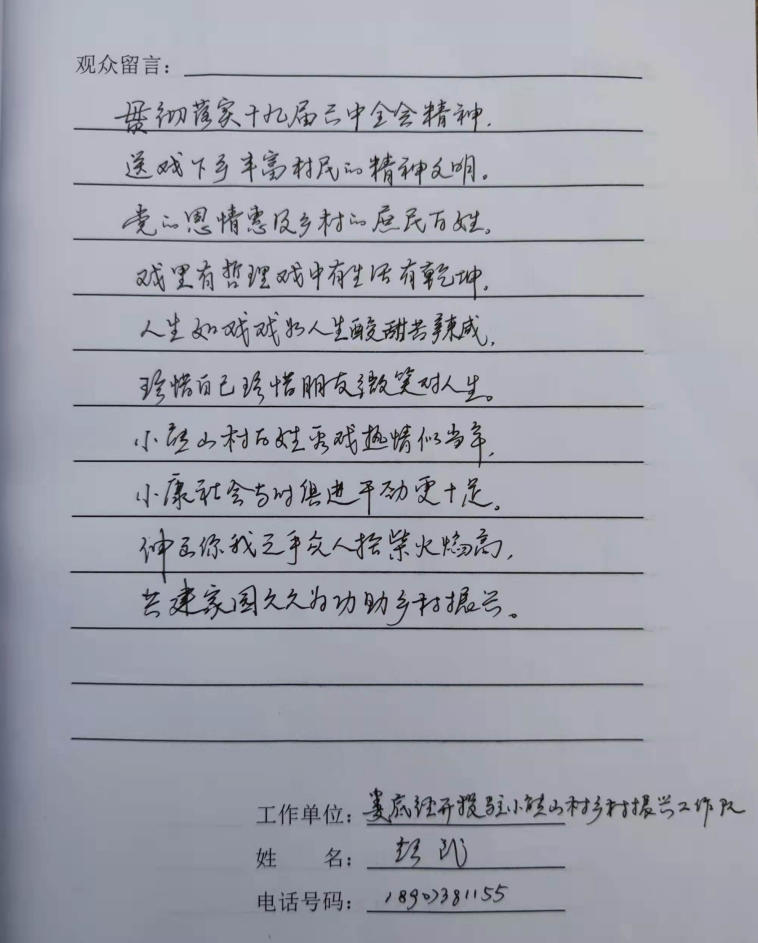 观众留言：
贯彻落实十九届六中全会精神，
送戏下乡丰富村民的精神文明。
党的恩情惠及乡村的庶民百姓。
戏里有哲理戏中有生活有乾坤，
人生如戏戏如人生酸甜苦辣咸，
珍惜自己珍惜朋友微笑对人生。
小熊山村百姓看戏热情似当年，
小康社会与时俱进干劲更十足。
伸出你我之手众人拾柴火焰高，
共建家园久久为功助乡村振兴。
工作单位：娄底经开投驻小熊山村乡村振兴工作队
姓 名：
电话号码：18907381155